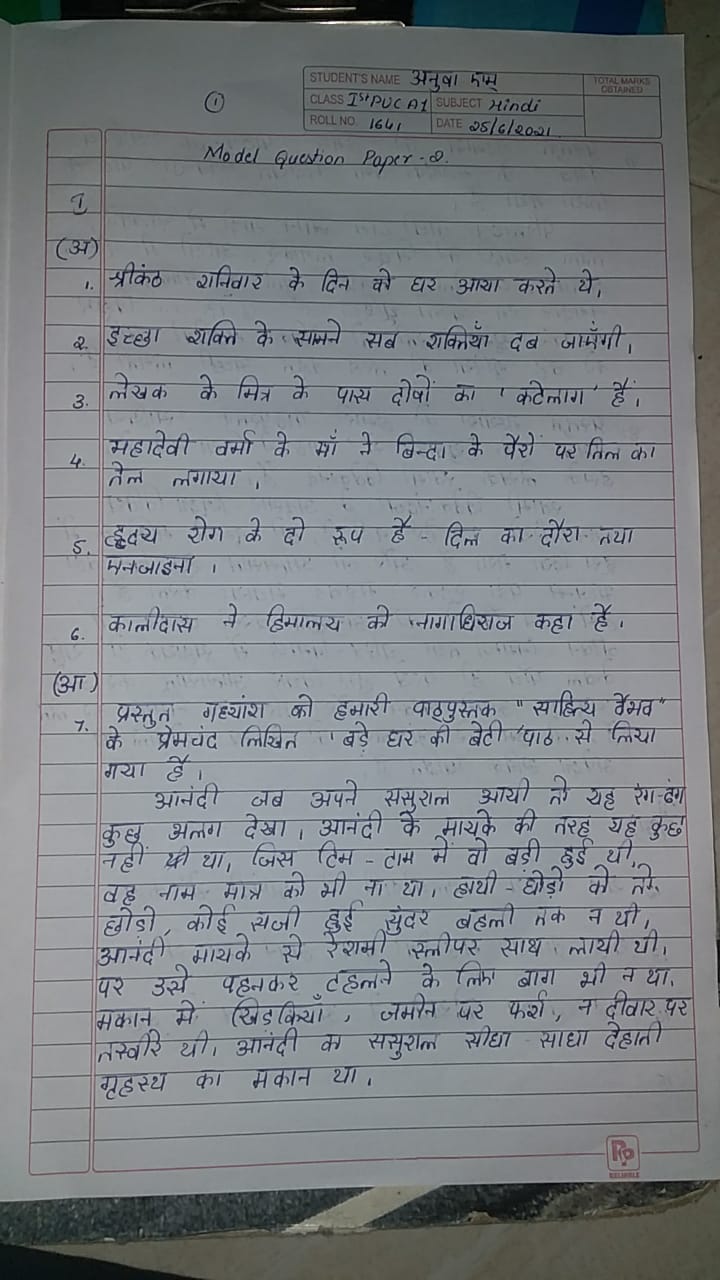 ①
STUDENT'S NAME अनुषा एम्
TOTAL MARKS OBTAINED
CLASS Ist PUC A1 SUBJECT Hindi
ROLL NO. 1641 DATE 25/6/2021
Model Question Paper - 2.
I
(अ)
1. श्रीकंठ शनिवार के दिन को घर आया करते थे।
2. इच्छा शक्ति के सामने सब शक्तियाँ दब जाएँगी।
3. लेखक के मित्र के पास दोषों का 'कटेलाग' हैं।
4. महादेवी वर्मा के माँ ने बिन्दा के पैरों पर तिल का
तेल लगाया।
5. हृदय रोग के दो रूप है - दिल का दौरा तथा
एनजाइना।
6. कालीदास ने हिमालय को नागाधिराज कहां है।
(आ)
7. प्रस्तुत गद्यांश को हमारी पाठ्पुस्तक "साहित्य वैभव"
के प्रेमचंद लिखित 'बड़े घर की बेटी' पाठ से लिया
गया है।
आनंदी जब अपने ससुराल आयी तो यह रंग-ढंग
कुछ अलग देखा। आनंदी के मायके की तरह यहं कुछ
नहीं था, जिस टिम-टाम में वो बड़ी हुई थी,
वह नाम मात्र को भी ना था। हाथी-घोड़ो को तो
छोड़ो, कोई सजी हुई सुंदर बहली तक न थी,
आनंदी मायके से रेशमी स्लीपर साथ लायी थी,
पर उसे पहनकर टहलने के लिए बाग भी न था,
मकान में खिडकियाँ, जमीन पर फर्श, न दीवार पर
तस्वीरे थी। आनंदी क ससुराल सीधा-साधा देहाती
गृहस्थ का मकान था।
Rp
RELIABLE